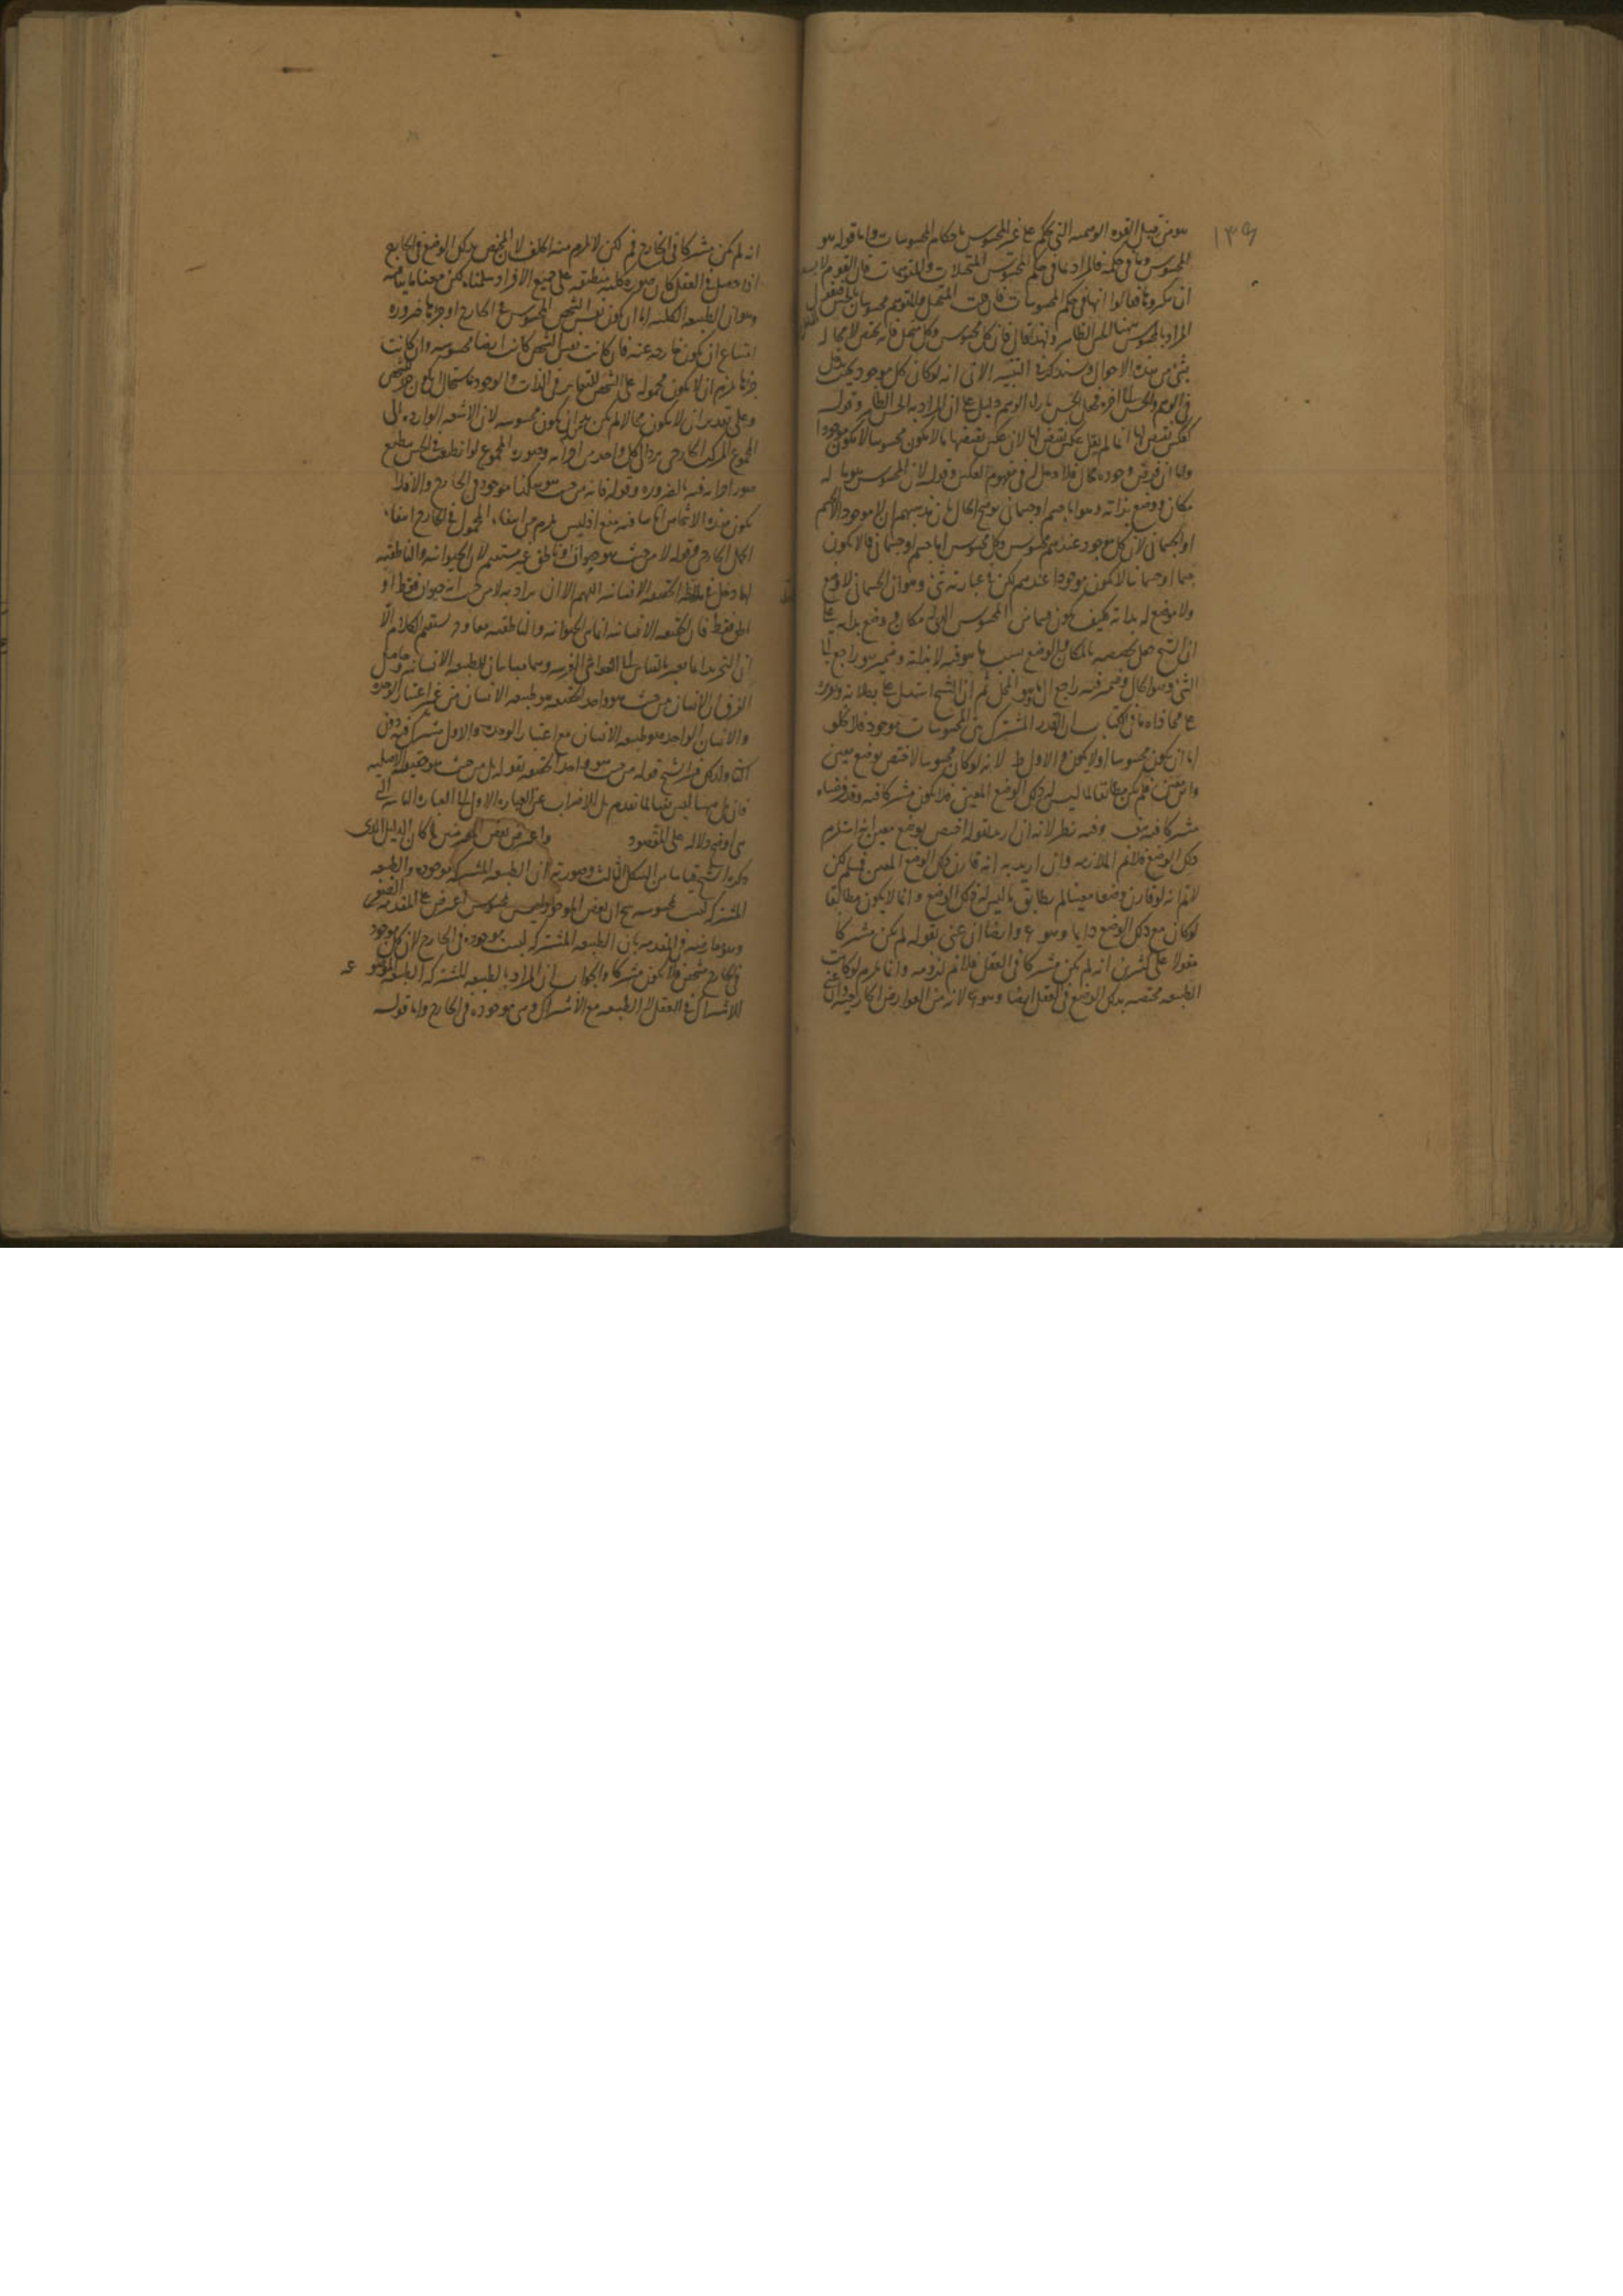 ١٣٩
هو من قبل القوة الوهمية التي تحكم على غير المحسوس باحكام المحسوسات واما قوله هو
المحسوس وما في حكمه فالمراد بما في حكم المحسوس المتخيلات والمتوهمات فان القوم لا
ان ينكروها فقالوا انها في حكم المحسوسات فان قلت المتخيل والمتوهم محسوسان بالحس فنقول
المراد بالمحسوس ههنا الحس الظاهر ولهذا قال فان كل محسوس وكل متخيل فانه يختص لا محالة
بشئ من هذه الاحوال وسنذكر في التنبيه الآتي انه لو كان كل موجود بحيث يدخل
في الوهم والحس الى آخره فجعل الحس بازاء الوهم دليل على ان المراد به الحس الظاهر وقوله
كعكس نقيض لها انما لم يقل عكس نقيض لها لان عكس نقيضها ما لا يكون محسوسا لا يكون موجودا
واما ان فرض وجوده محال فلا دخل له في مفهوم العكس وقوله لان المحسوس هو ما له
مكان ووضع بذاته وهو اما جسم او جسماني يوضح الحال فان مذهبهم ان لا موجود الا الجسم
او الجسماني لان كل موجود عندهم محسوس وكل محسوس اما جسم او جسماني فما لا يكون
جسما او جسمانيا لا يكون موجودا عندهم لكن في عبارته شئ وهو ان الجسماني لا وضع
ولا موضع له بذاته فكيف يكون قسما من المحسوس الذي له مكان ووضع بذاته على
ان الشيخ جعل تخصصه بالمكان والوضع بسبب ما هو فيه لا بذاته وضمير هو راجع الى
الشئ وهو الحال وضمير فيه راجع الى ما وهو المحل ثم ان الشيخ استدل على بطلانه
على محاذاة ما في الكتاب ان القدر المشترك بين المحسوسات موجود فلا يخلو
اما ان يكون محسوسا او لا يكون والاول بط لانه لو كان محسوسا لاختص بوضع معين
واين معين فلم يكن مطابقا لما ليس له ذلك الوضع المعين فلا يكون مشتركا فيه وقد فرضناه
مشتركا فيه هف وفيه نظر لانه ان اريد بقوله اختص بوضع معين انه استلزم
ذلك الوضع فلا نم الملازمة وان اريد به انه قارن ذلك الوضع المعين فمسلم لكن
لا نم انه لو قارن وضعا معينا لم يطابق ما ليس له ذلك الوضع وانما لا يكون مطابقا
لو كان مع ذلك الوضع دائما وهو مم وايضا ان عنى بقوله لم يكن مشتركا
مقولا على كثيرين انه لم يكن مشتركا في العقل فلا نم لزومه وانما يلزم لو كانت
الطبيعة مختصة بذلك الوضع في العقل ايضا وهو مم لانه من العوارض الخارجية وان عنى
انه لم يكن مشتركا في الخارج فم لكن لا يلزم منه الخلف لان المختص بذلك الوضع في الخارج
اذا حصل في العقل كان صورة كلية منطبقة على جميع الافراد سلمناه لكن معنا ما ينافيه
وهو ان الطبيعة الكلية اما ان يكون نفس الشخص المحسوس في الخارج او جزءها ضرورة
امتناع ان يكون خارجة عنه فان كانت نفس الشخص كانت ايضا محسوسة وان كانت
جزءها يلزم ان لا يكون محمولة على الشخص للتغاير في الذات والوجود فاستحال ان يكون جزء الشخص
وعلى تقدير ان لا يكون محالا لم يكن بد من ان يكون محسوسة لان الاشعة الواردة الى
المجموع المركب الخارجي يرد الى كل واحد من اجزائه وصورة المجموع لو انطبعت في الحس ينطبع
صور اجزائه فيه بالضرورة وقوله فانه من حيث هو هكذا موجود في الخارج والا فلا
يكون هذه الاشخاص اناسا فيه منع اذ ليس يلزم من انتفاء المحمول في الخارج انتفاء
الحمل الخارجي وقوله لا من حيث هو حيوان او ناطق غير مستقيم لان الحيوانية والناطقية
لها دخل في ملاحظة الحقيقة الانسانية اللهم الا ان يراد به لا من حيث انه حيوان فقط او
ناطق فقط فان الحقيقة الانسانية انما هي الحيوانية والناطقية معا وح يستقيم الكلام الا
ان التجريد انما يعتبر بالقياس الى العوارض الغريبة وهما مباينان للطبيعة الانسانية وحاصل
الفرق ان الانسان من حيث هو واحد الحقيقة هو طبيعة الانسان من غير اعتبار الوحدة
والانسان الواحد هو طبيعة الانسان مع اعتبار الوحدة والاول مشترك فيه دون
الثاني ولذلك فسر الشيخ قوله من حيث هو واحد الحقيقة بقوله بل من حيث هو حقيقته الاصلية
فان بل ههنا ليس نفيا لما تقدم بل للاضراب عن العبارة الاولى الى العبارة الثانية التي
هي اوضح دلالة على المقصود واعترض بعض المعترضين لما كان الدليل الذي
ذكره الشيخ قياسا من الشكل الثالث وصورته ان الطبيعة المشتركة موجودة والطبيعة
المشتركة ليست محسوسة ينتج ان بعض الموجود ليس بمحسوس اعترض على المقدمة الصغرى
وهو معارضة في المقدمة بان الطبيعة المشتركة ليست موجودة في الخارج لان كل موجود
في الخارج مشخص فلا يكون مشتركا والجواب ان المراد بالطبيعة المشتركة الطبيعة المعروضة
للاشتراك في العقل لا الطبيعة مع الاشتراك وهي موجودة في الخارج واما قوله